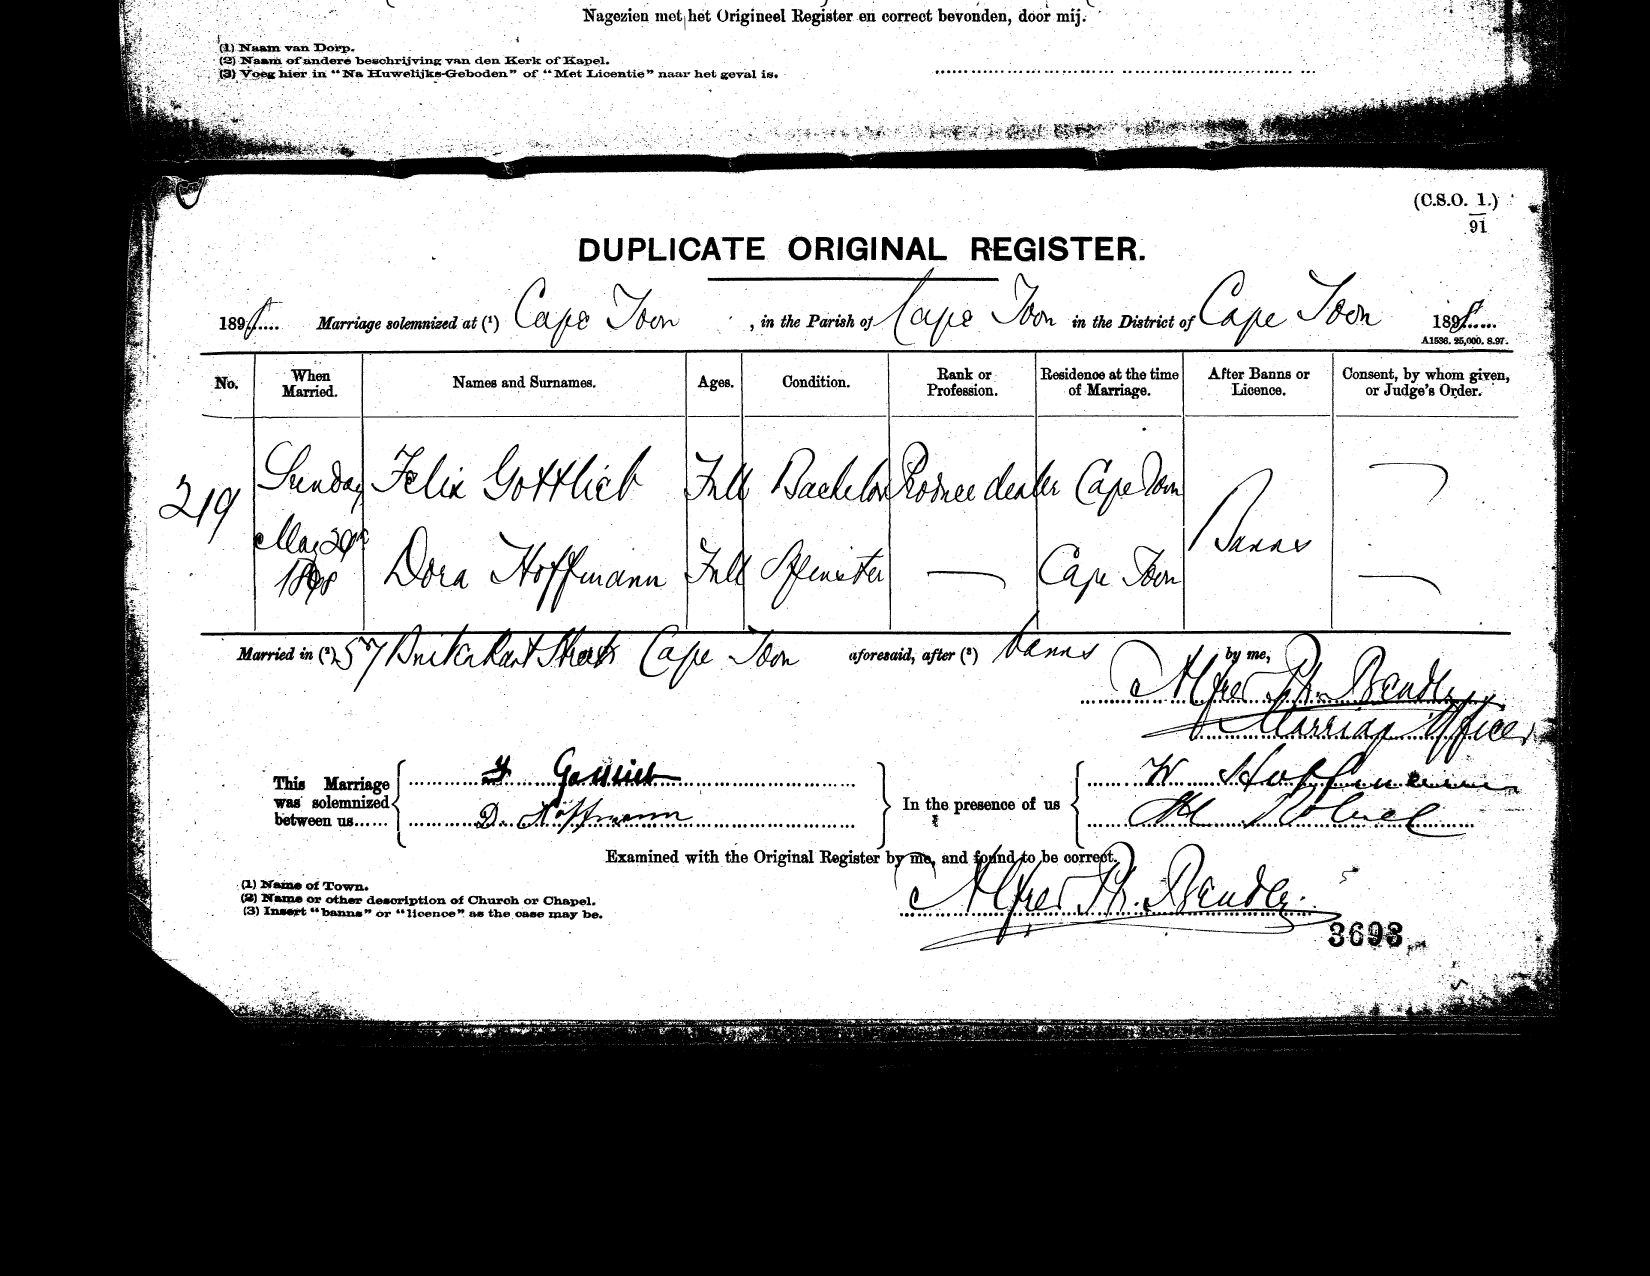 Nagezien met het Origineel Register en correct bevonden, door mij.
(1) Naam van Dorp.
(2) Naam of andere beschrijving van den Kerk of Kapel.
(3) Voeg hier in "Na Huwelijks-Geboden" of "Met Licentie" naar het geval is.
(C.S.O. 1.)
91
DUPLICATE ORIGINAL REGISTER.
1898 Marriage solemnized at (1) Cape Town, in the Parish of Cape Town in the District of Cape Town 1898
A1536. 25,000. 8.97.
No. When Married. Names and Surnames. Ages. Condition. Rank or Profession. Residence at the time of Marriage. After Banns or Licence. Consent, by whom given, or Judge's Order.
219 Sunday Felix Gottlieb Full Bachelor Produce dealer Cape Town
May 29th 1898 Dora Hoffmann Full Spinster — Cape Town Banns
Married in (2) 57 Buitenkant Street Cape Town aforesaid, after (3) banns by me,
Alfred Ph. Bender
Marriage Officer
This Marriage was solemnized between us...... F Gottlieb
D. Hoffmann
In the presence of us W Hoffmann
Examined with the Original Register by me, and found to be correct.
Alfred Ph. Bender
(1) Name of Town.
(2) Name or other description of Church or Chapel.
(3) Insert "banns" or "licence" as the case may be.
3693